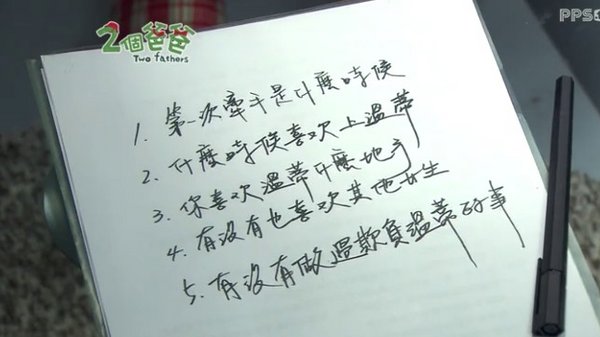 2個爸爸
Two fathers
PPS
1. 第一次牽手是什麼時候
2. 什麼時候喜欢上溫蒂
3. 你喜欢溫蒂什麼地方
4. 有沒有也喜欢其他女生
5. 有沒有做過欺負溫蒂的事